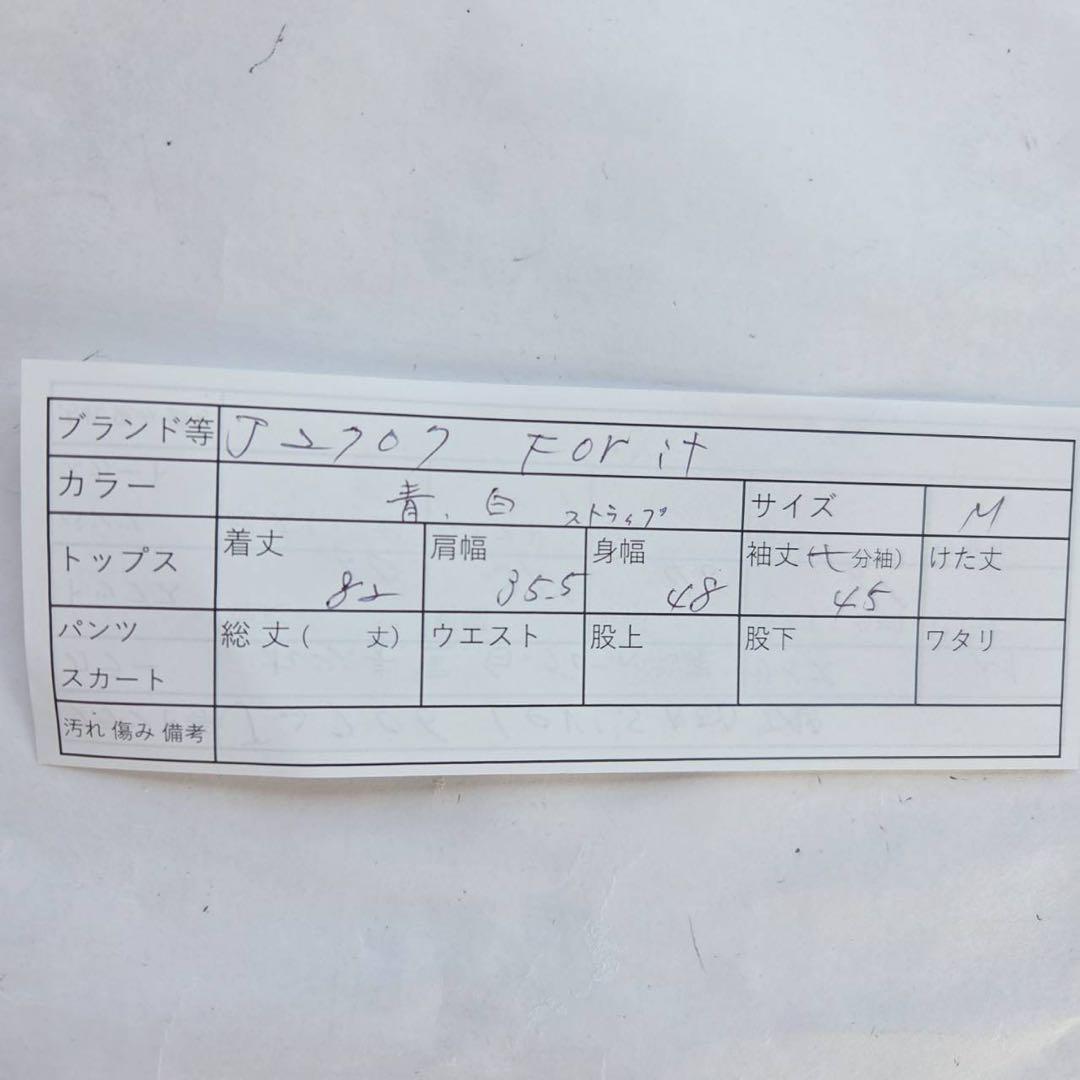 ブランド等 J2707 For it
カラー 青、白 ストライプ サイズ M
トップス 着丈 82 肩幅 35.5 身幅 48 袖丈(七分袖) 45 けた丈
パンツ 総丈( 丈) ウエスト 股上 股下 ワタリ
スカート
汚れ 傷み 備考